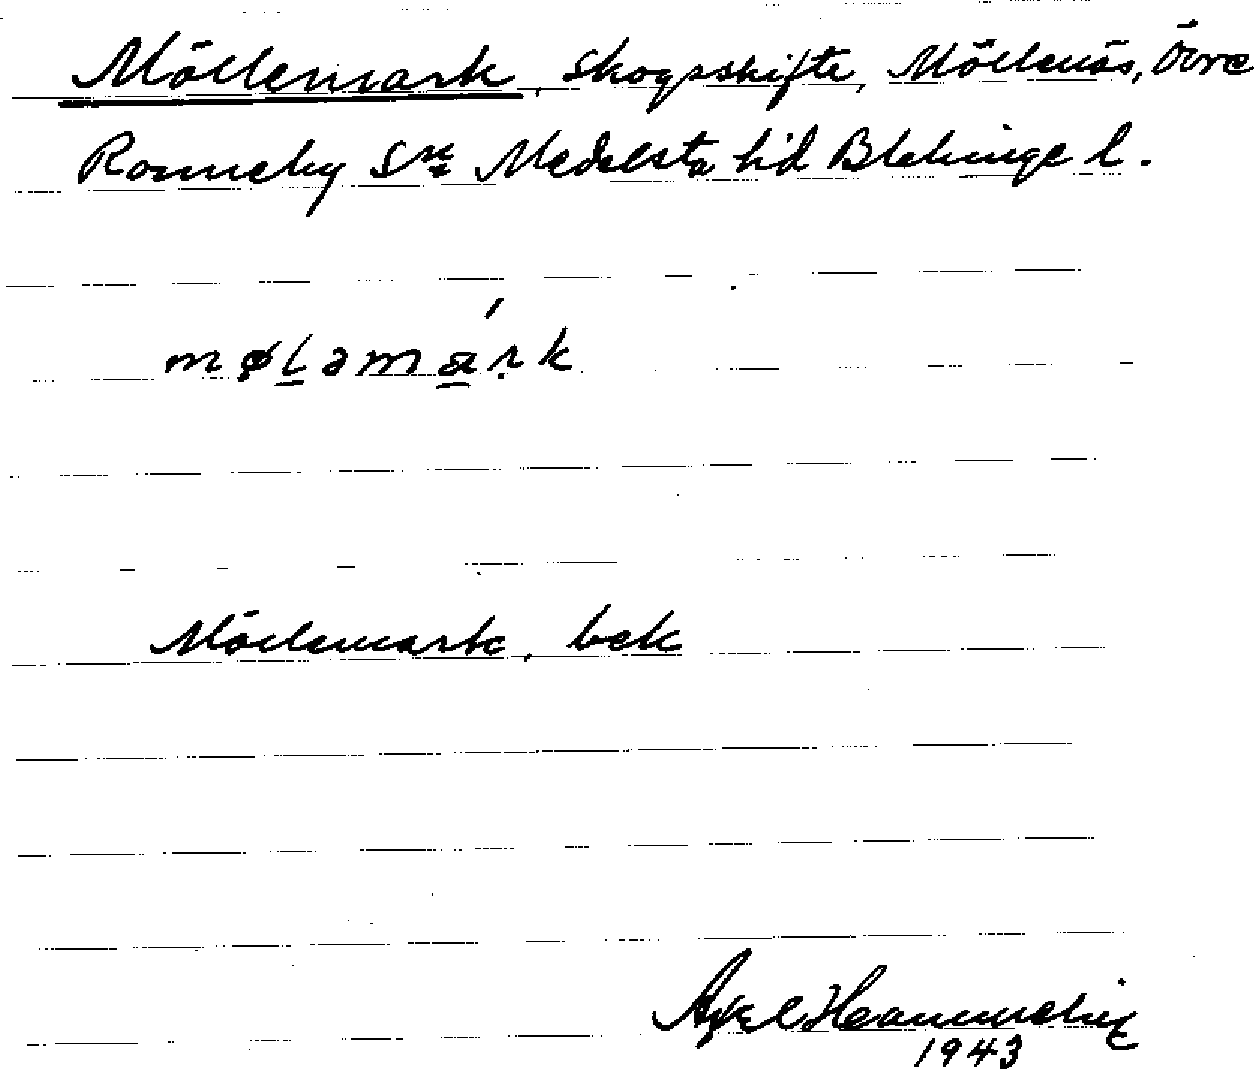 Möllemark, skogsskifte, Möllenäs, Övre
Ronneby Sn Medelsta hd Blekinge l.
mølamárk
Möllemark, bek
Axel
1943